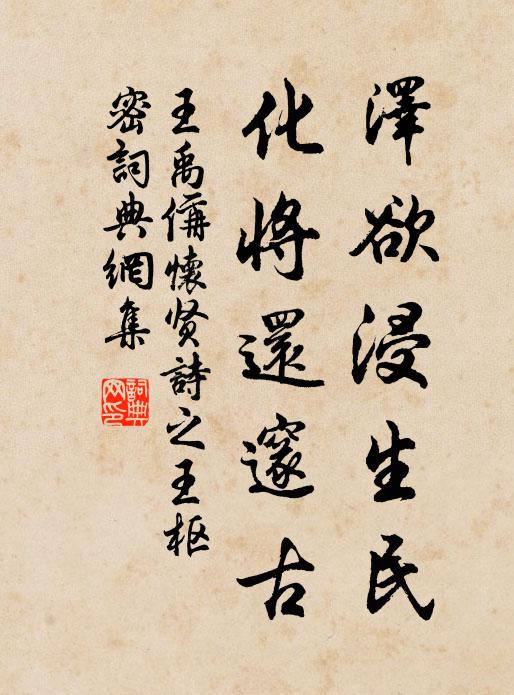 澤欲浸生民
化將還邃古
王禹偁懷贤詩之王枢
密詞典網集
詞典
网印